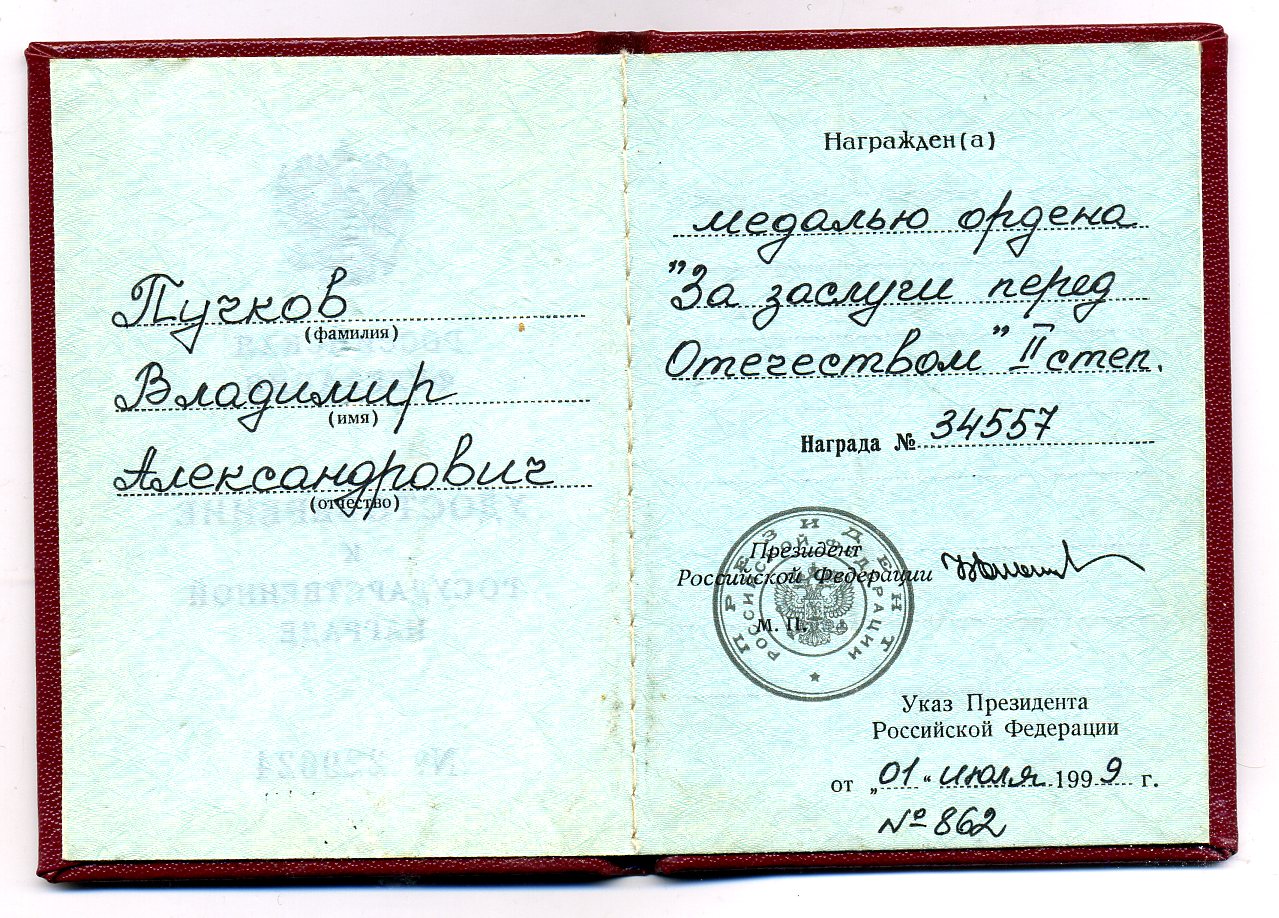 Пучков
(фамилия)
Владимир
(имя)
Александрович
(отчество)
Награжден(а)
медалью ордена
"За заслуги перед
Отечеством" II степ.
Награда № 34557
Президент
Российской Федерации
м. п.
ПРЕЗИДЕНТ
РОССИЙСКОЙ ФЕДЕРАЦИИ
Указ Президента
Российской Федерации
от „01“ июля 1999 г.
№ 862